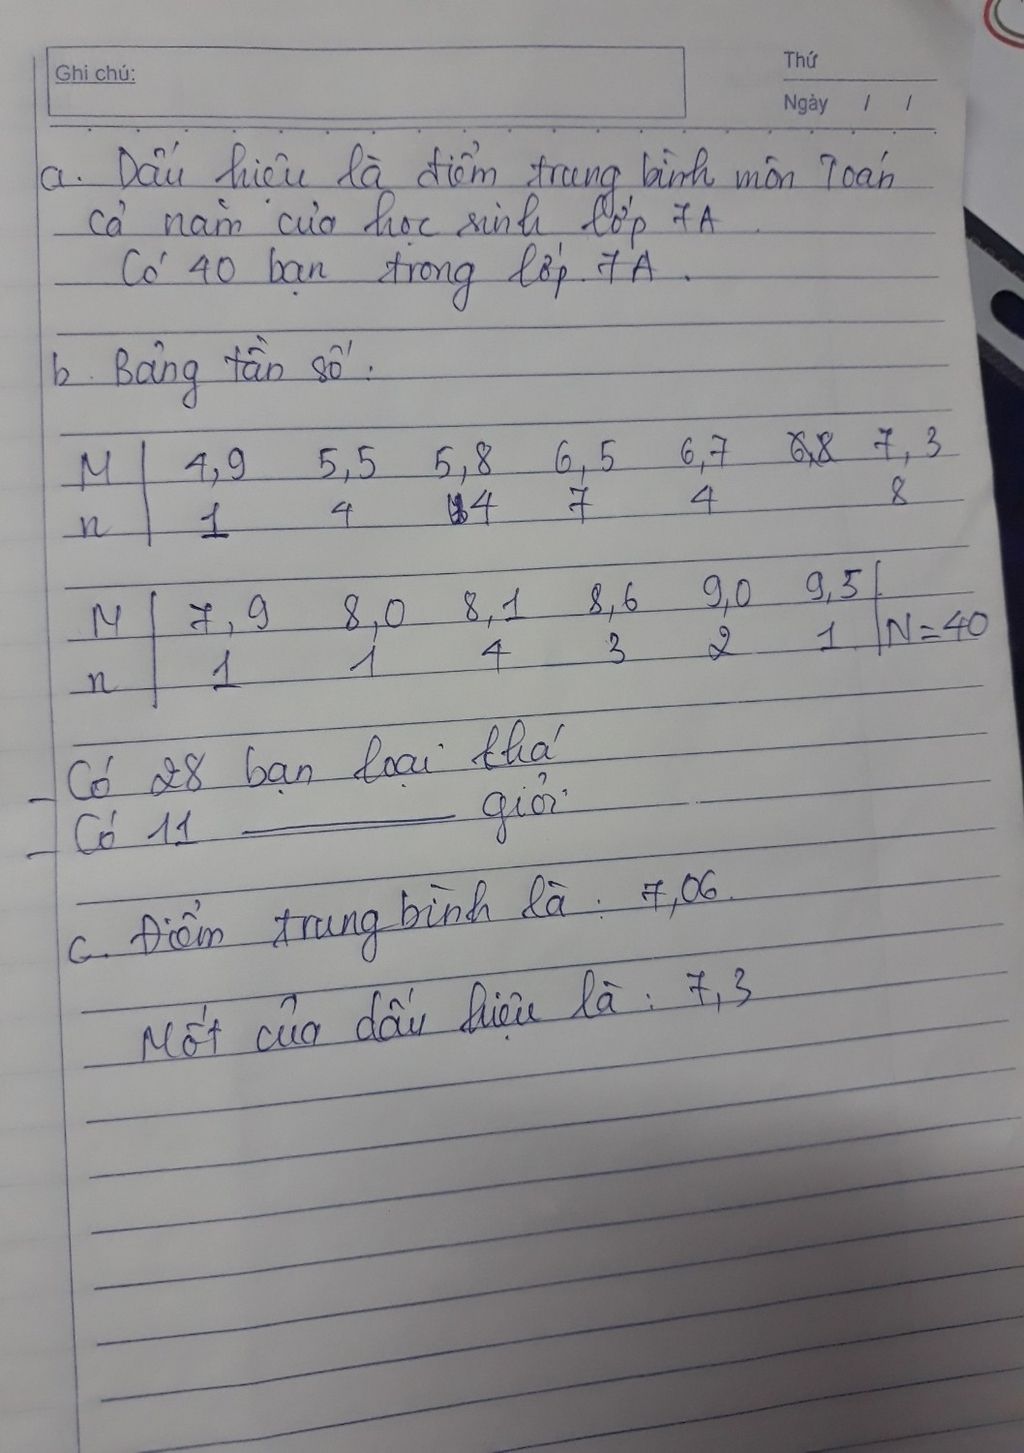 Ghi chú:
Thứ
Ngày / /
a. Dấu hiệu là điểm trung bình môn Toán
cả năm của học sinh lớp 7A.
Có 40 bạn trong lớp 7A.
b. Bảng tần số:
M 4,9 5,5 5,8 6,5 6,7 6,8 7,3
n 1 4 4 7 4 8
M 7,9 8,0 8,1 8,6 9,0 9,5
n 1 1 4 3 2 1 N=40
- Có 28 bạn loại khá
- Có 11 —— giỏi
c. Điểm trung bình là: 7,06.
Mốt của dấu hiệu là: 7,3